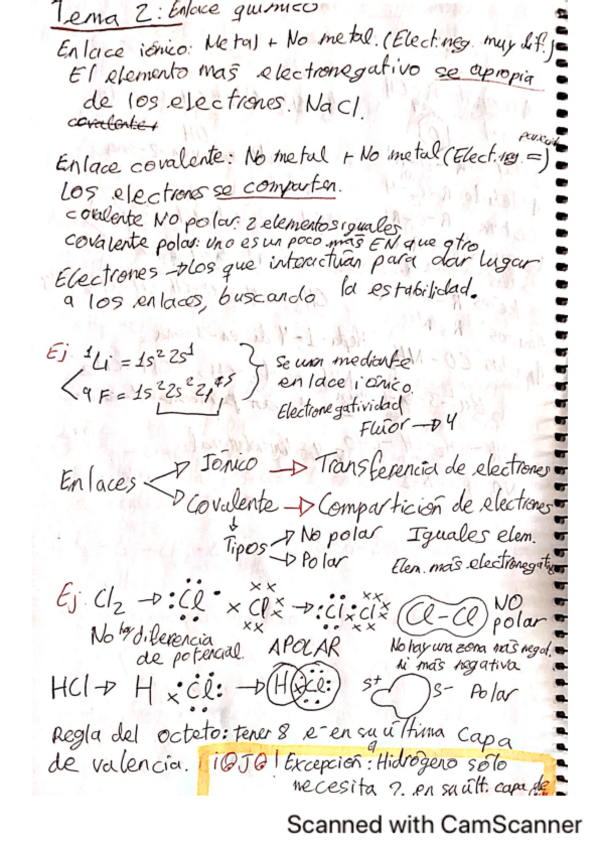 Tema 2: Enlace químico
Enlace iónico: Metal + No metal. (Elect.neg. muy dif.)
El elemento mas electronegativo se apropia
de los electrones. NaCl.
covalente
Enlace covalente: No metal + No metal (Elect.neg. =)
Los electrones se comparten.
covalente NO polar: 2 elementos iguales
covalente polar: uno es un poco más EN que otro
Electrones → los que interactúan para dar lugar
a los enlaces, buscando la estabilidad.
Ej Li = 1s² 2s¹
9 F = 1s² 2s² 2p⁵
Se unen mediante
enlace iónico.
Electronegatividad
Fluor → 4
Enlaces
Iónico → Transferencia de electrones
Covalente → Compartición de electrones
Tipos → No polar Iguales elem.
→ Polar Elem. más electronegativo
Ej. Cl₂ → :Cl· × Cl → :Cl:Cl Cl-Cl NO polar
No hay diferencia
de potencial. APOLAR
No hay una zona más negat.
ni más negativa
HCl → H × Cl: → H × Cl: δ+ δ- Polar
Regla del octeto: tener 8 e⁻ en su última capa
de valencia. ¡OJO! Excepción: Hidrógeno sólo
necesita 2 en su últ. capa de
Scanned with CamScanner